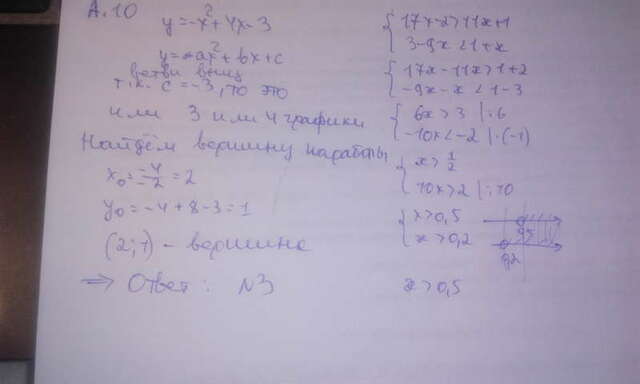 А.10
y=-x²+4x-3
y=-ax²+bx+c
ветви вниз
т.к. c=-3, то это
или 3 или 4 графики
Найдём вершину параболы
x₀=-4/-2=2
y₀=-4+8-3=1
(2;1) - вершина
⇒ Ответ: №3
{17x-2>11x+1
3-9x<1+x
{17x-11x>1+2
-9x-x<1-3
{6x>3 |:6
-10x<-2 |·(-1)
{x>1/2
10x>2 |:10
{x>0,5
x>0,2
0,5
0,2
x>0,5